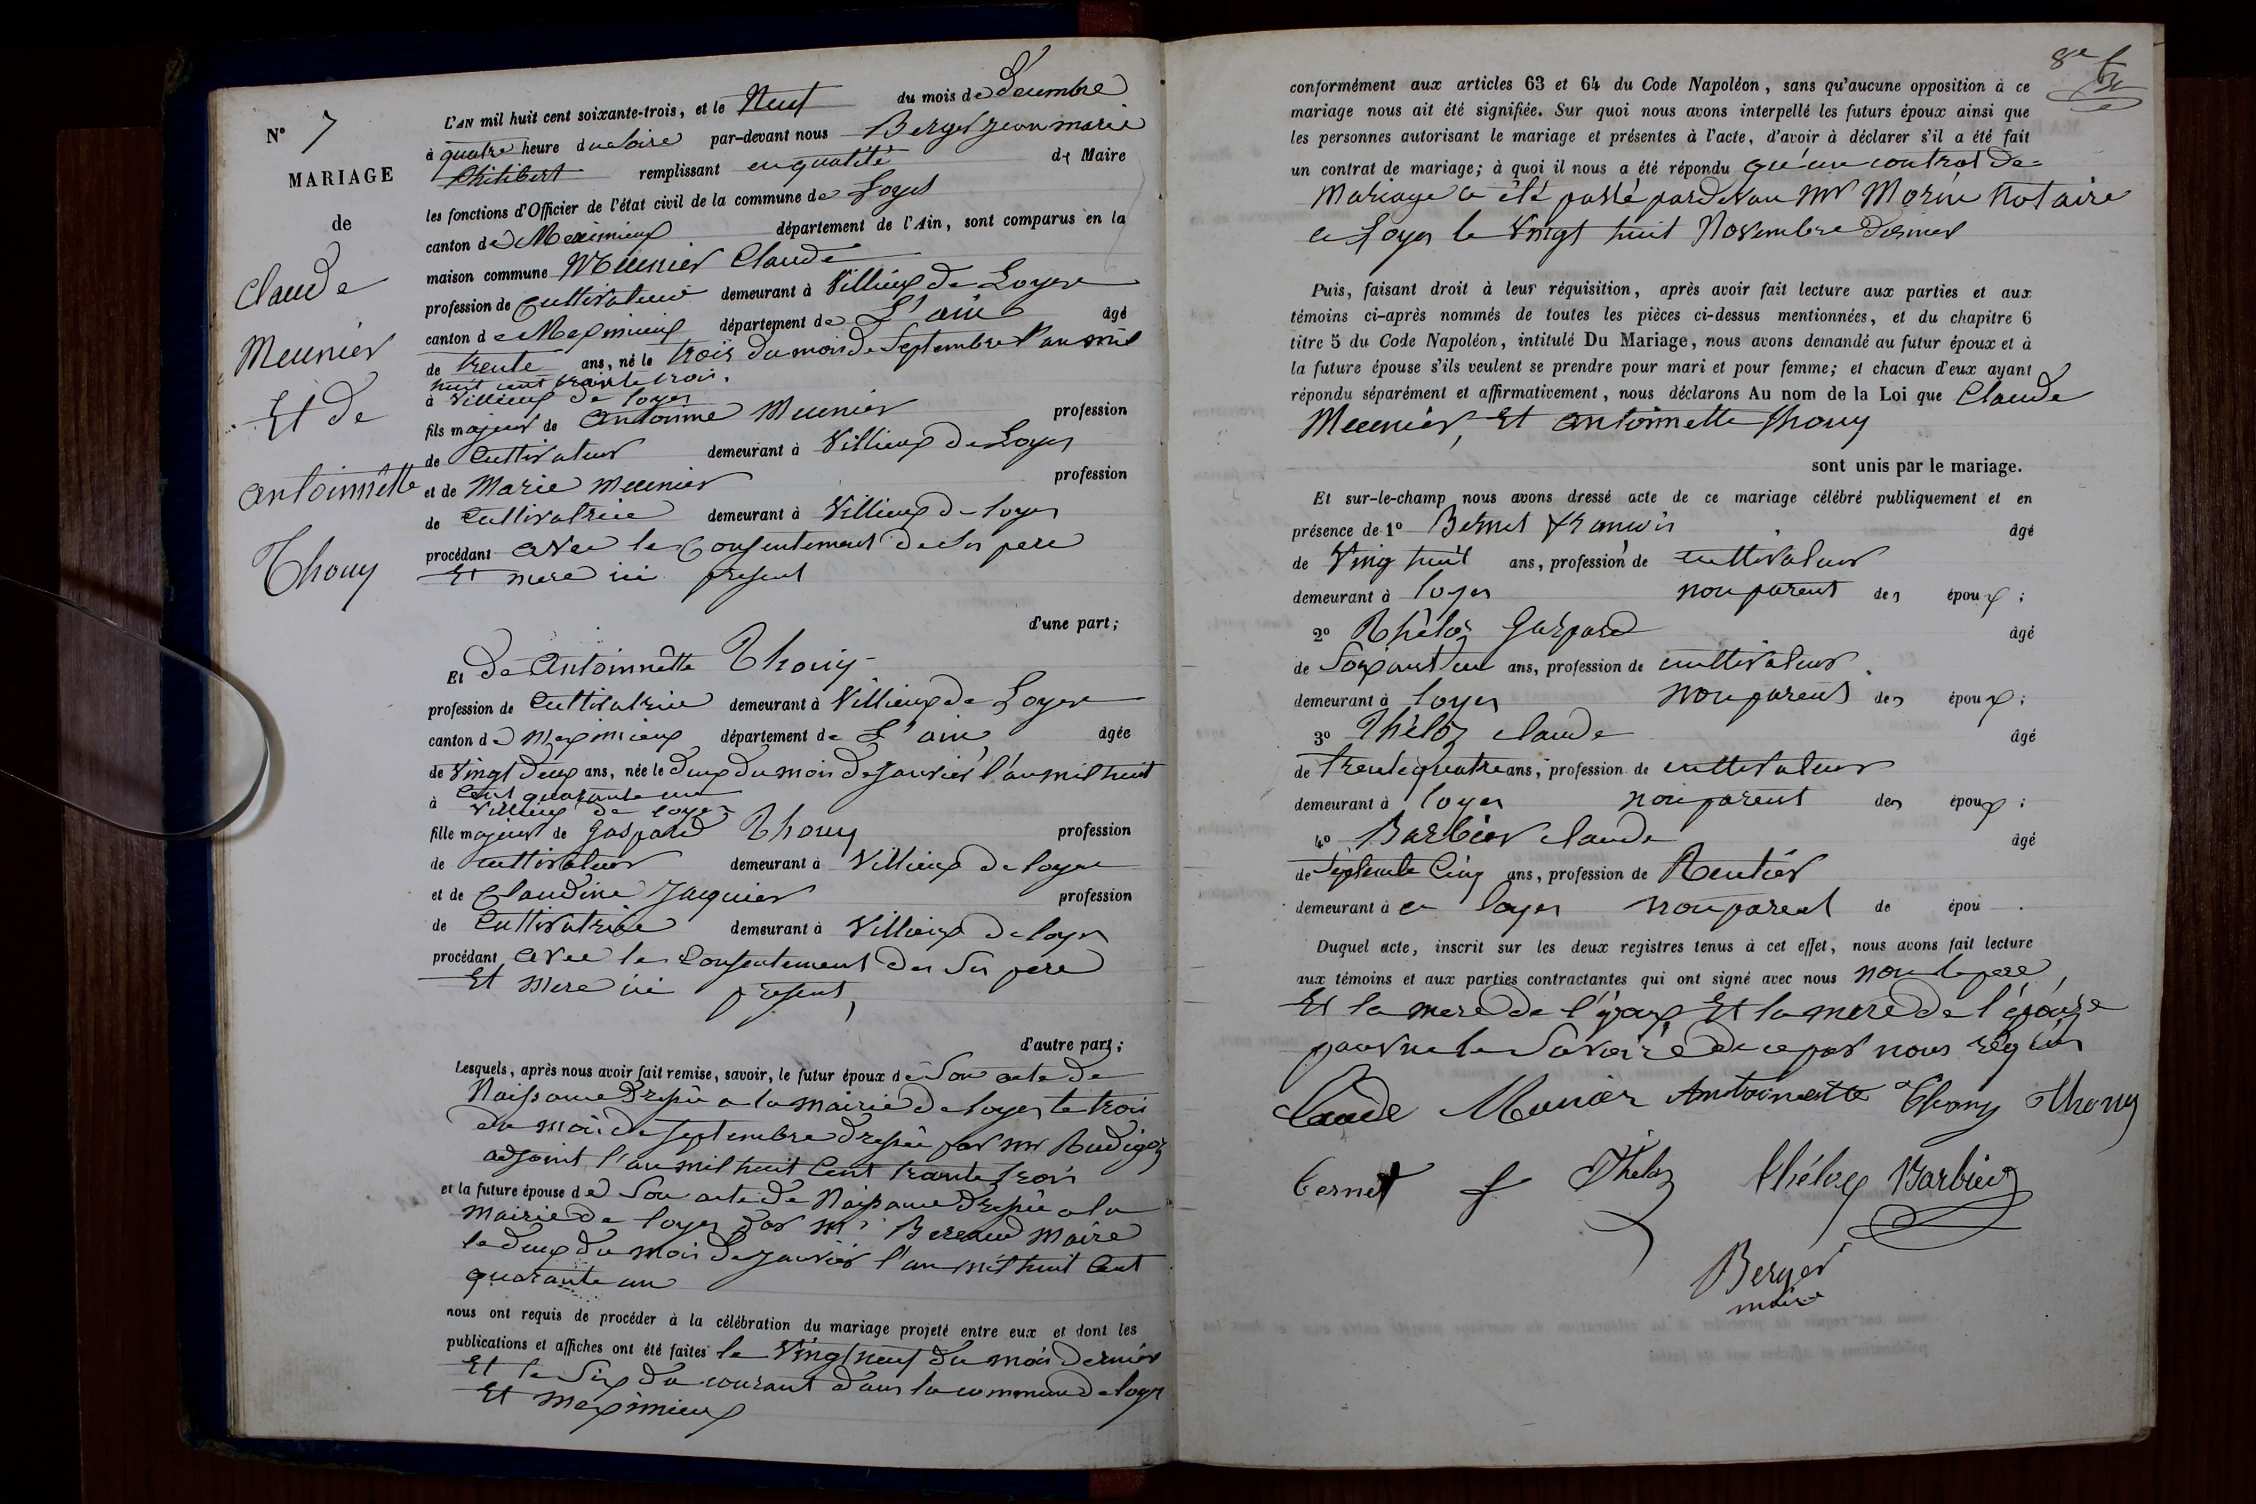 N° 7
MARIAGE
de
Claude
Meunier
Et de
antoinnette
Thouy
L'AN mil huit cent soixante-trois, et le Neuf du mois de Décembre
à quatre heure du soire par-devant nous Berger Jean marie
Philibert remplissant en qualité de Maire
les fonctions d'Officier de l'état civil de la commune de Loyes
canton de Meximieux département de l'Ain, sont comparus en la
maison commune Meunier Claude
profession de Cultivateur demeurant à Villieux de Loyes
canton de Meximieux département de L'ain âgé
de trente ans, né le trois du mois de Septembre l'an mil
huit cent trente trois.
à Villieux de loyes
fils majeur de Antoinne Meunier profession
de Cultivateur demeurant à Villieux de Loyes
et de Marie Meunier profession
de Cultivatrice demeurant à Villieux de loyes
procédant avec le Consentement de ses pere
Et mere ici present
d'une part;
Et De Antoinnette Thouy
profession de Cultivatrice demeurant à Villieux de Loyes
canton de Meximieux département de L'ain âgée
de Vingt deux ans, née le deux du mois de Janvier l'an mil huit
Cent quarante un
à Villieux de loyes
fille majeur de Gaspard Thouy profession
de cultivateur demeurant à Villieux de loyes
et de Claudine Jacquier profession
de Cultivatrice demeurant à Villieux de loyes
procédant avec le Consentement des Ses pere
Et mere ici present,
d'autre part;
Lesquels, après nous avoir fait remise, savoir, le futur époux de Son acte de
Naissance Dressée a la mairie de loyes le trois
du mois de Septembre dressée par mr Rudigoz
adjoint l'an mil huit Cent trante trois
et la future épouse de Son acte de Naissance Dressée a la
mairie de loyes par mr Bereaud maire
le deux du mois de Janvier l'an mil huit Cent
quarante un
nous ont requis de procéder à la célébration du mariage projeté entre eux et dont les
publications et affiches ont été faites le Vingt neuf du mois dernier
Et le Six du courant dans la commune de loyes
Et Meximieux
8e
conformément aux articles 63 et 64 du Code Napoléon, sans qu'aucune opposition à ce
mariage nous ait été signifiée. Sur quoi nous avons interpellé les futurs époux ainsi que
les personnes autorisant le mariage et présentes à l'acte, d'avoir à déclarer s'il a été fait
un contrat de mariage; à quoi il nous a été répondu qu'un contrat de=
Mariage a été passé pardevan Mr Morin Notaire
a Loyes le Vingt huit Novembre dernier
Puis, faisant droit à leur réquisition, après avoir fait lecture aux parties et aux
témoins ci-après nommés de toutes les pièces ci-dessus mentionnées, et du chapitre 6
titre 5 du Code Napoléon, intitulé Du Mariage, nous avons demandé au futur époux et à
la future épouse s'ils veulent se prendre pour mari et pour femme; et chacun d'eux ayant
répondu séparément et affirmativement, nous déclarons Au nom de la Loi que Claude
Meunier, Et Antoinnette Thouy
sont unis par le mariage.
Et sur-le-champ nous avons dressé acte de ce mariage célébré publiquement et en
présence de 1° Bernet francois âgé
de Ving huit ans, profession de cultivateur
demeurant à loyes non parent des époux;
2° Théloz Gaspard âgé
de Soixant un ans, profession de cultivateur
demeurant à loyes non parent des époux;
3° Théloz claude âgé
de trente quatre ans, profession de cultivateur
demeurant à loyes non parent des époux;
4° Barbier claude âgé
de Septente Cinq ans, profession de Rentier
demeurant à a loyes non parent de épou .
Duquel acte, inscrit sur les deux registres tenus à cet effet, nous avons fait lecture
aux témoins et aux parties contractantes qui ont signé avec nous non le pere
Et la mere de l'époux Et la mere de l'épouse
pour ne le Savoire de ce par nous requis
Claude Munier Antoinette Thouy Thouy
bernet f Théloz théloz Barbier
Berger
maire